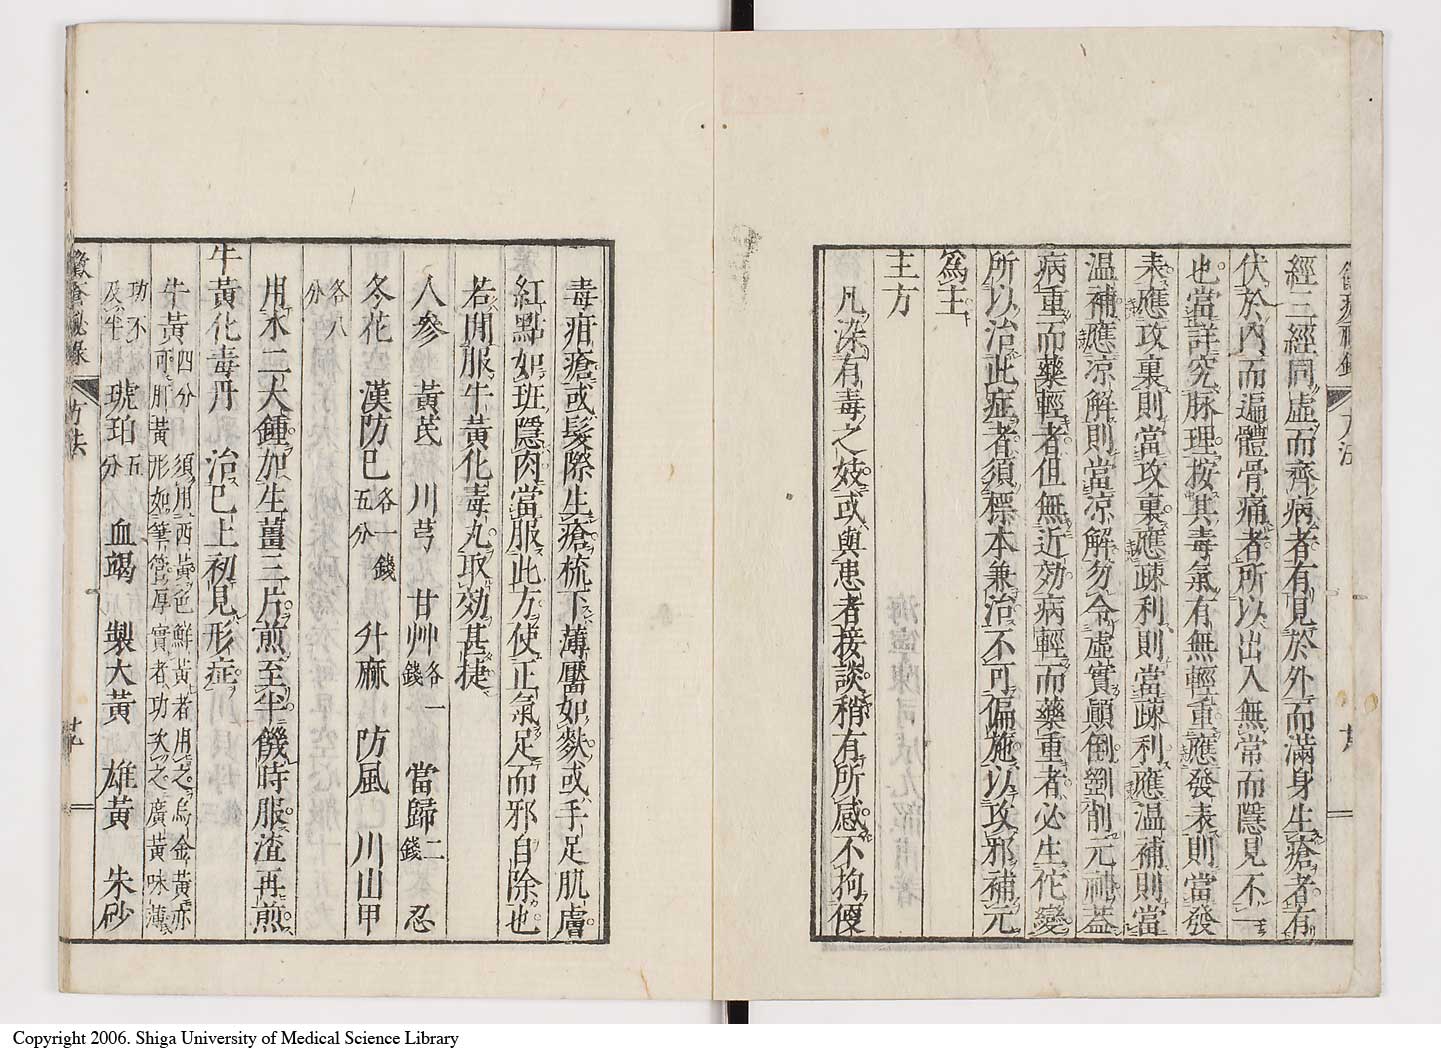 經三經同虛而齊病者有見於外而滿身生瘡者有
伏於內而遍體骨痛者所以出入無常而隱見不一
也當詳究脉理按其毒氣有無輕重應發表則當發
表應攻裏則當攻裏應疎利則當疎利應温補則當
温補應凉解則當凉解勿令虛實顛倒劉削元神蓋
病重而藥輕者但無近効病輕而藥重者必生佗變
所以治此症者須標本兼治不可偏施以攻邪補元
爲主
主方
凡染有毒之妓或與患者接談稍有所感不拘便
毒疳瘡或髮際生瘡梳下薄靨如麩或手足肌膚
紅點如班隱肉當服此方使正氣足而邪自除也
若間服牛黃化毒丸取効甚捷
人參 黃芪 川芎 甘艸各一錢 當歸二錢 忍
冬花 漢防已各一錢五分 升麻 防風 川山甲
各八分
用水二大鍾加生薑三片煎至半饑時服渣再煎
牛黃化毒丹 治已上初見形症
牛黃四分 須用西黃色鮮黃者用之烏金黃亦可肛黃形如筆管厚實者功次之廣黃味薄
功不及半 琥珀五分 血竭 製大黃 雄黃 朱砂
黴瘡秘錄
方法
廿九
Copyright 2006. Shiga University of Medical Science Library